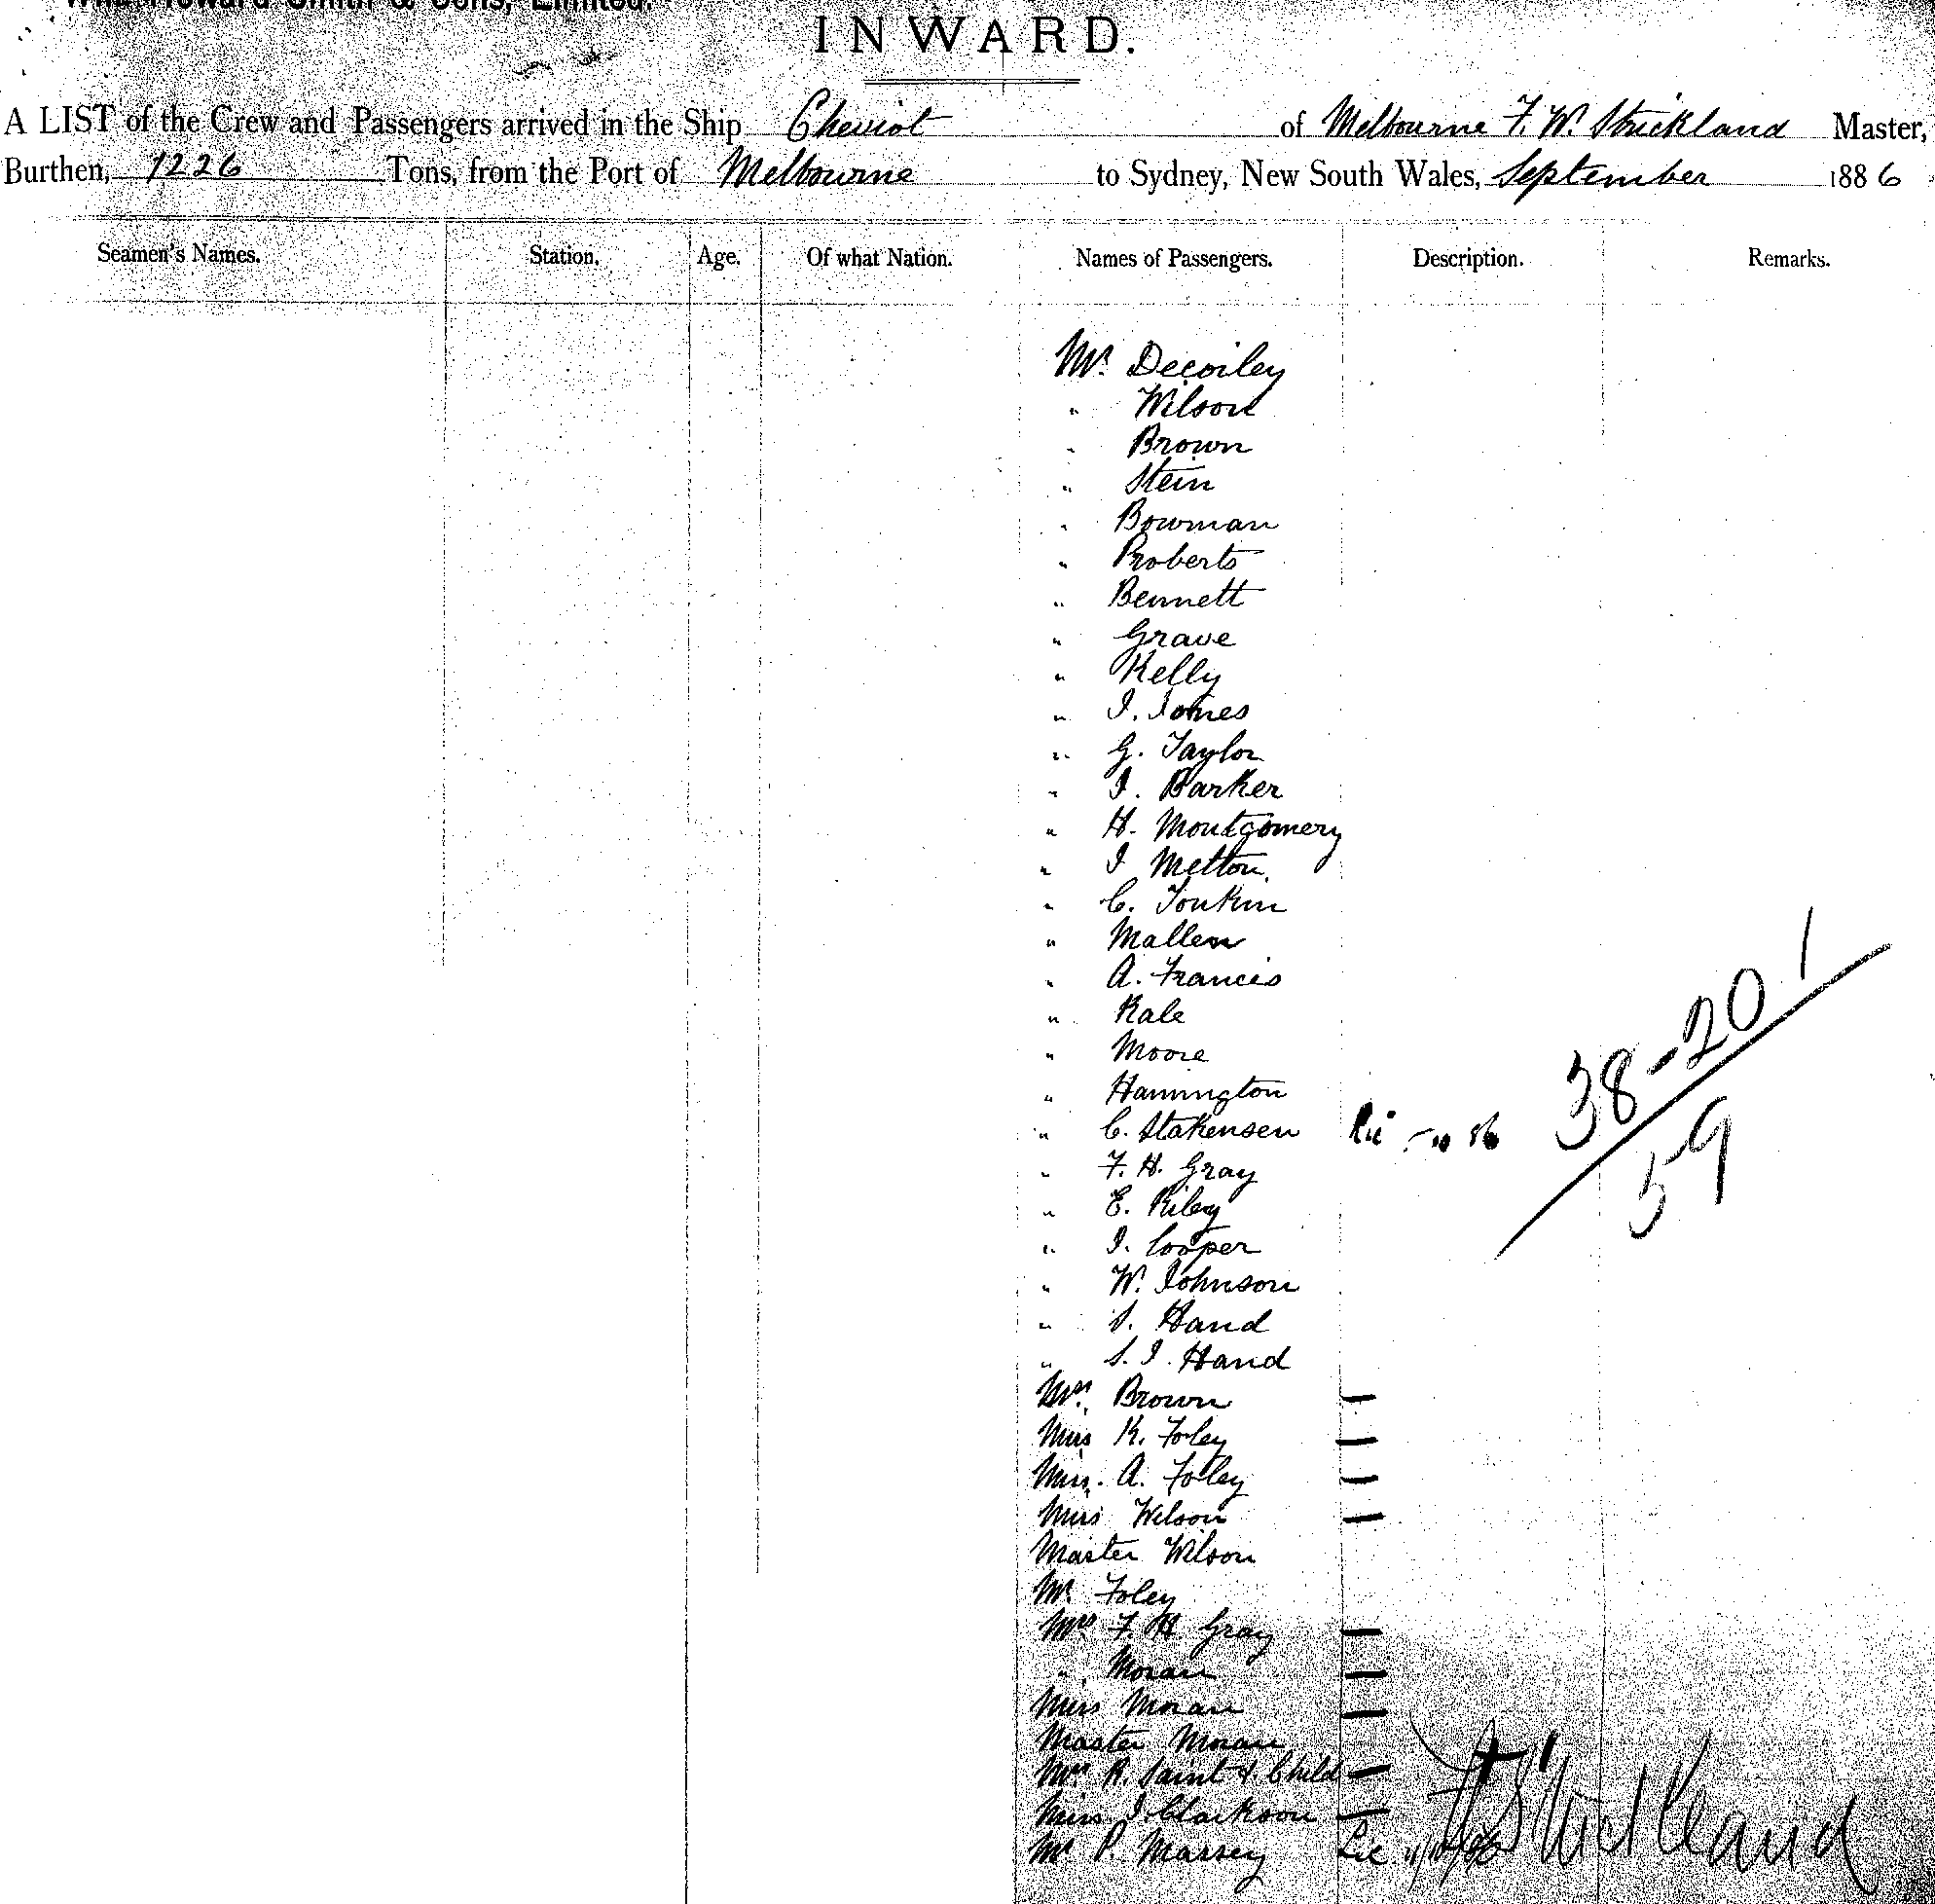 Wm. Howard Smith & Sons, Limited.
INWARD.
A LIST of the Crew and Passengers arrived in the Ship Cheviot of Melbourne F. W. Strickland Master,
Burthen, 1226 Tons, from the Port of Melbourne to Sydney, New South Wales, September 1886
Seamen's Names. Station. Age. Of what Nation. Names of Passengers. Description. Remarks.
Mr. Decoiley
" Wilson
" Brown
" Stein
" Bowman
" Roberts
" Bennett
" Grave
" Kelly
" I. Jones
" G. Taylor
" I. Barker
" H. Montgomery
" I Melton
" C. Tonkin
" Mallen
" A. Francis
" Kale
" Moore
" Hannington
" C. Stakensen
" F. H. Gray
" E. Riley
" I. Cooper
" W. Johnson
" S. Hand
" S. I. Hand
38-20 1
59
Mrs. Brown —
Miss K. Foley —
Miss. A. Foley —
Miss Wilson —
Master Wilson
Mr. Foley
Mrs F. H. Gray —
" Moran —
Miss Moran —
Master Moran
Mrs R. Saint & Child —
Miss I. Clarkson —
Mr P. Massey Lic
F W Strickland